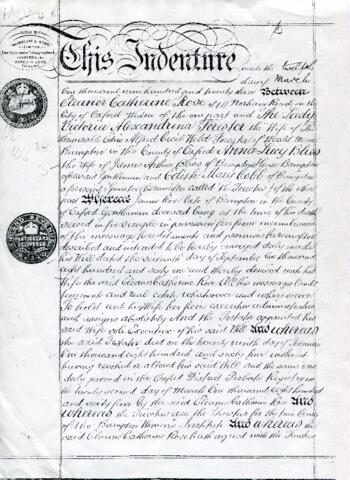 This Indenture made the twelfth
day of March
One thousand nine hundred and twenty three Between
Eleanor Catherine Rose of Norham Road in the
City of Oxford Widow of the one part and The Lady
Victoria Alexandrina Forester the Wife of The
Honourable Edric Alfred Cecil Weld Forester of Weald Manor
Bampton in the County of Oxford Anna Lucy
the Wife of James Arthur of Bampton House Bampton
aforesaid Gentleman and Edith Mary Cobb of Bampton
aforesaid Spinster hereinafter called the Trustees of the other
part Whereas James Rose late of Bampton in the County of
Oxford Gentleman deceased being at the time of his death
seized in fee simple in possession free from incumbrances
of the messuage hereditaments and premises hereinafter
described and intended to be hereby conveyed duly made
his Will dated the sixteenth day of September One thousand
eight hundred and sixty one and thereby devised unto his
Wife the said Eleanor Catherine Rose All his messuages lands
tenements and real estate whatsoever and wheresoever
To hold unto his Wife her heirs executors administrators
and assigns absolutely And the Testator appointed his
said Wife sole Executrix of his said Will And whereas
the said Testator died on the twenty ninth day of January
One thousand eight hundred and sixty four without
having revoked or altered his said Will and the same was
duly proved in the Oxford District Probate Registry on
the twenty second day of March One thousand eight hundred
and sixty four by the said Eleanor Catherine Rose And
whereas the Trustees are the Trustees for the time being
of the Bampton Womens Institute And whereas the
said Eleanor Catherine Rose hath agreed with the Trustees